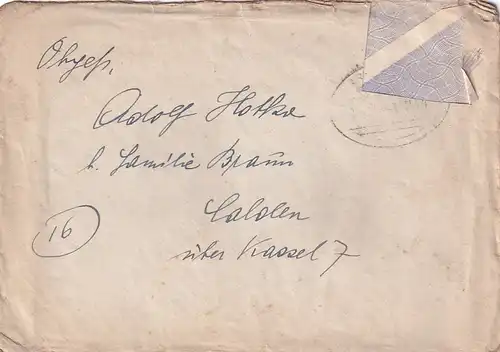 Adolf Hotka
b. Familie Braun
Calden
über Kassel 7
16